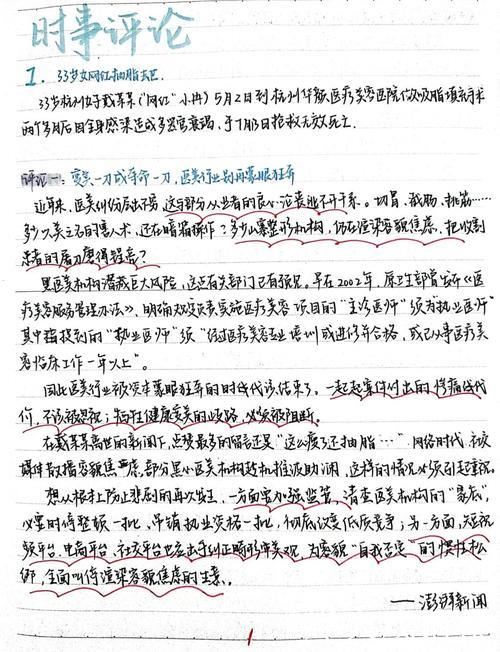 时事评论
1. 33岁女网红抽脂去世.
33岁杭州女子戴某某("网红"小冉)5月2日到杭州华颜医疗美容医院做吸脂填充手术
两个多月后因全身感染造成多器官衰竭，于7月13日抢救无效死亡.
评论一：变美一刀成夺命一刀，医美行业别再蒙眼狂奔
近年来，医美纠纷层出不穷，这与部分从业者的良心沦丧逃不开干系。切骨、截肠、抽筋……
多少以美之名的害人术，还在暗箱操作？多少山寨整形机构，仍在渲染容貌焦虑，把收割
患者的屠刀磨得锃亮？
黑医美机构潜藏巨大风险，这点有关部门已有预见。早在2002年，原卫生部曾公布《医
疗美容服务管理办法》，明确规定负责实施医疗美容项目的"主诊医师"须为"执业医师"
其中指提到的"执业医师"须"经过医疗美容专业培训或进修并合格，或已从事医疗美
容临床工作一年以上"。
因此医美行业被资本蒙眼狂奔的时代该结束了，一起起案件付出的惨痛代
价，不该被忽视；栖在健康变美的歧路，必须被阻断。
在戴某某离世的新闻下，点赞最多的留言还是"这么瘦了还抽脂…"网络时代，社交
媒体散播容貌焦虑，部分黑心医美机构趁机推波助澜，这样的情况必须引起重视。
想从根本上防止悲剧的再次发生，一方面官方强监管，清查医美机构的"毒瘤"，
必要时停整顿一批，吊销执业资格一批，彻底改变低质竞争；另一方面，短视
频平台、电商平台、社交平台也应当纠正畸形审美观，为容貌"自我否定"的惯性松
绑，全面叫停渲染容貌焦虑的生意。
——澎湃新闻
1